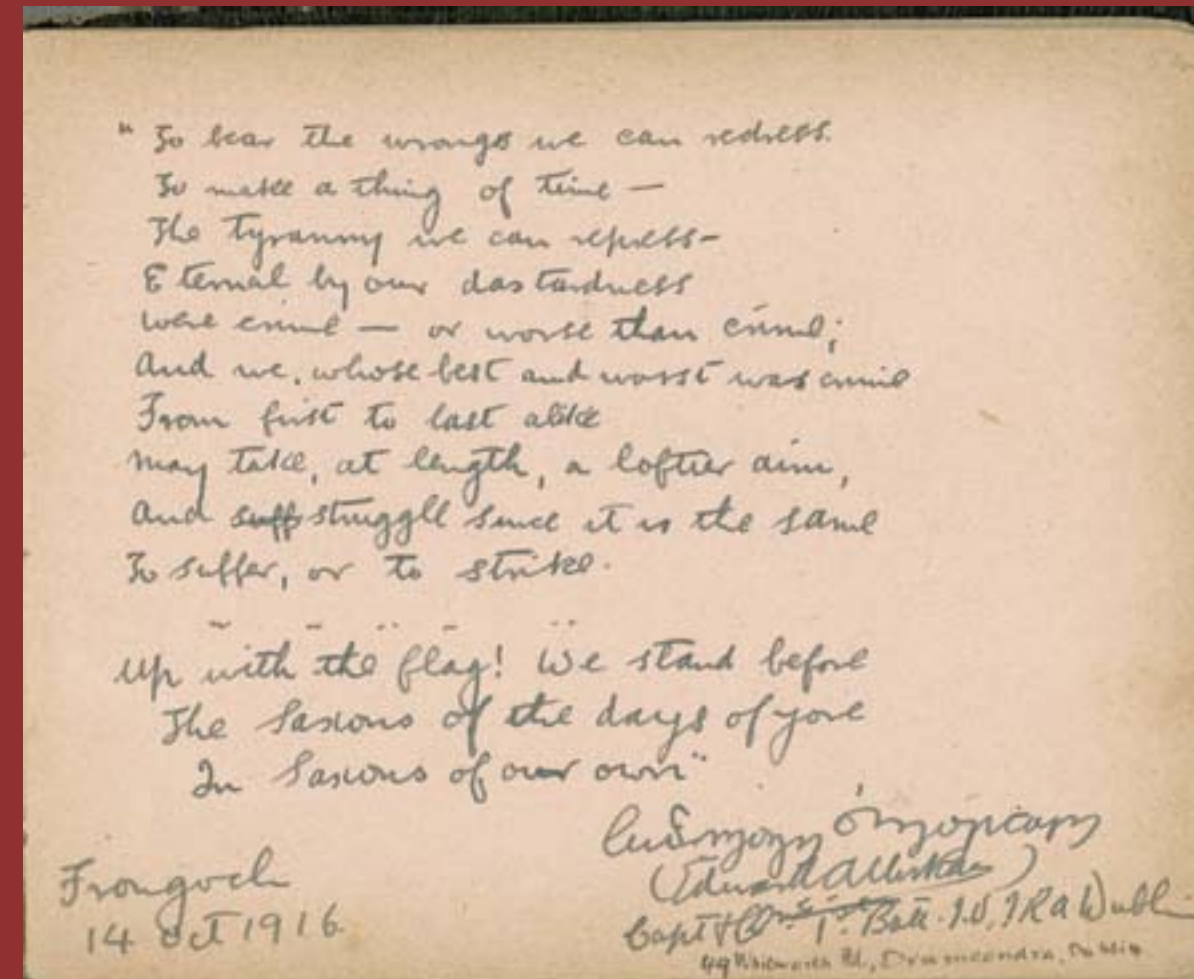 " To bear the wrongs we can redress.
To make a thing of time —
The tyranny we can repress—
Eternal by our dastardness
Were crime — or worse than crime;
And we, whose best and worst was crime
From first to last alike
May take, at length, a loftier aim,
And suff struggle since it is the same
To suffer, or to strike.
Up with the flag! We stand before
The Saxons of the days of yore
In Saxons of our own"
Frongoch
14 Oct 1916.
(Edward
Capt 1st Batt. I.V, IRA Dublin
49 Whitworth Rd., Drumcondra, Dublin